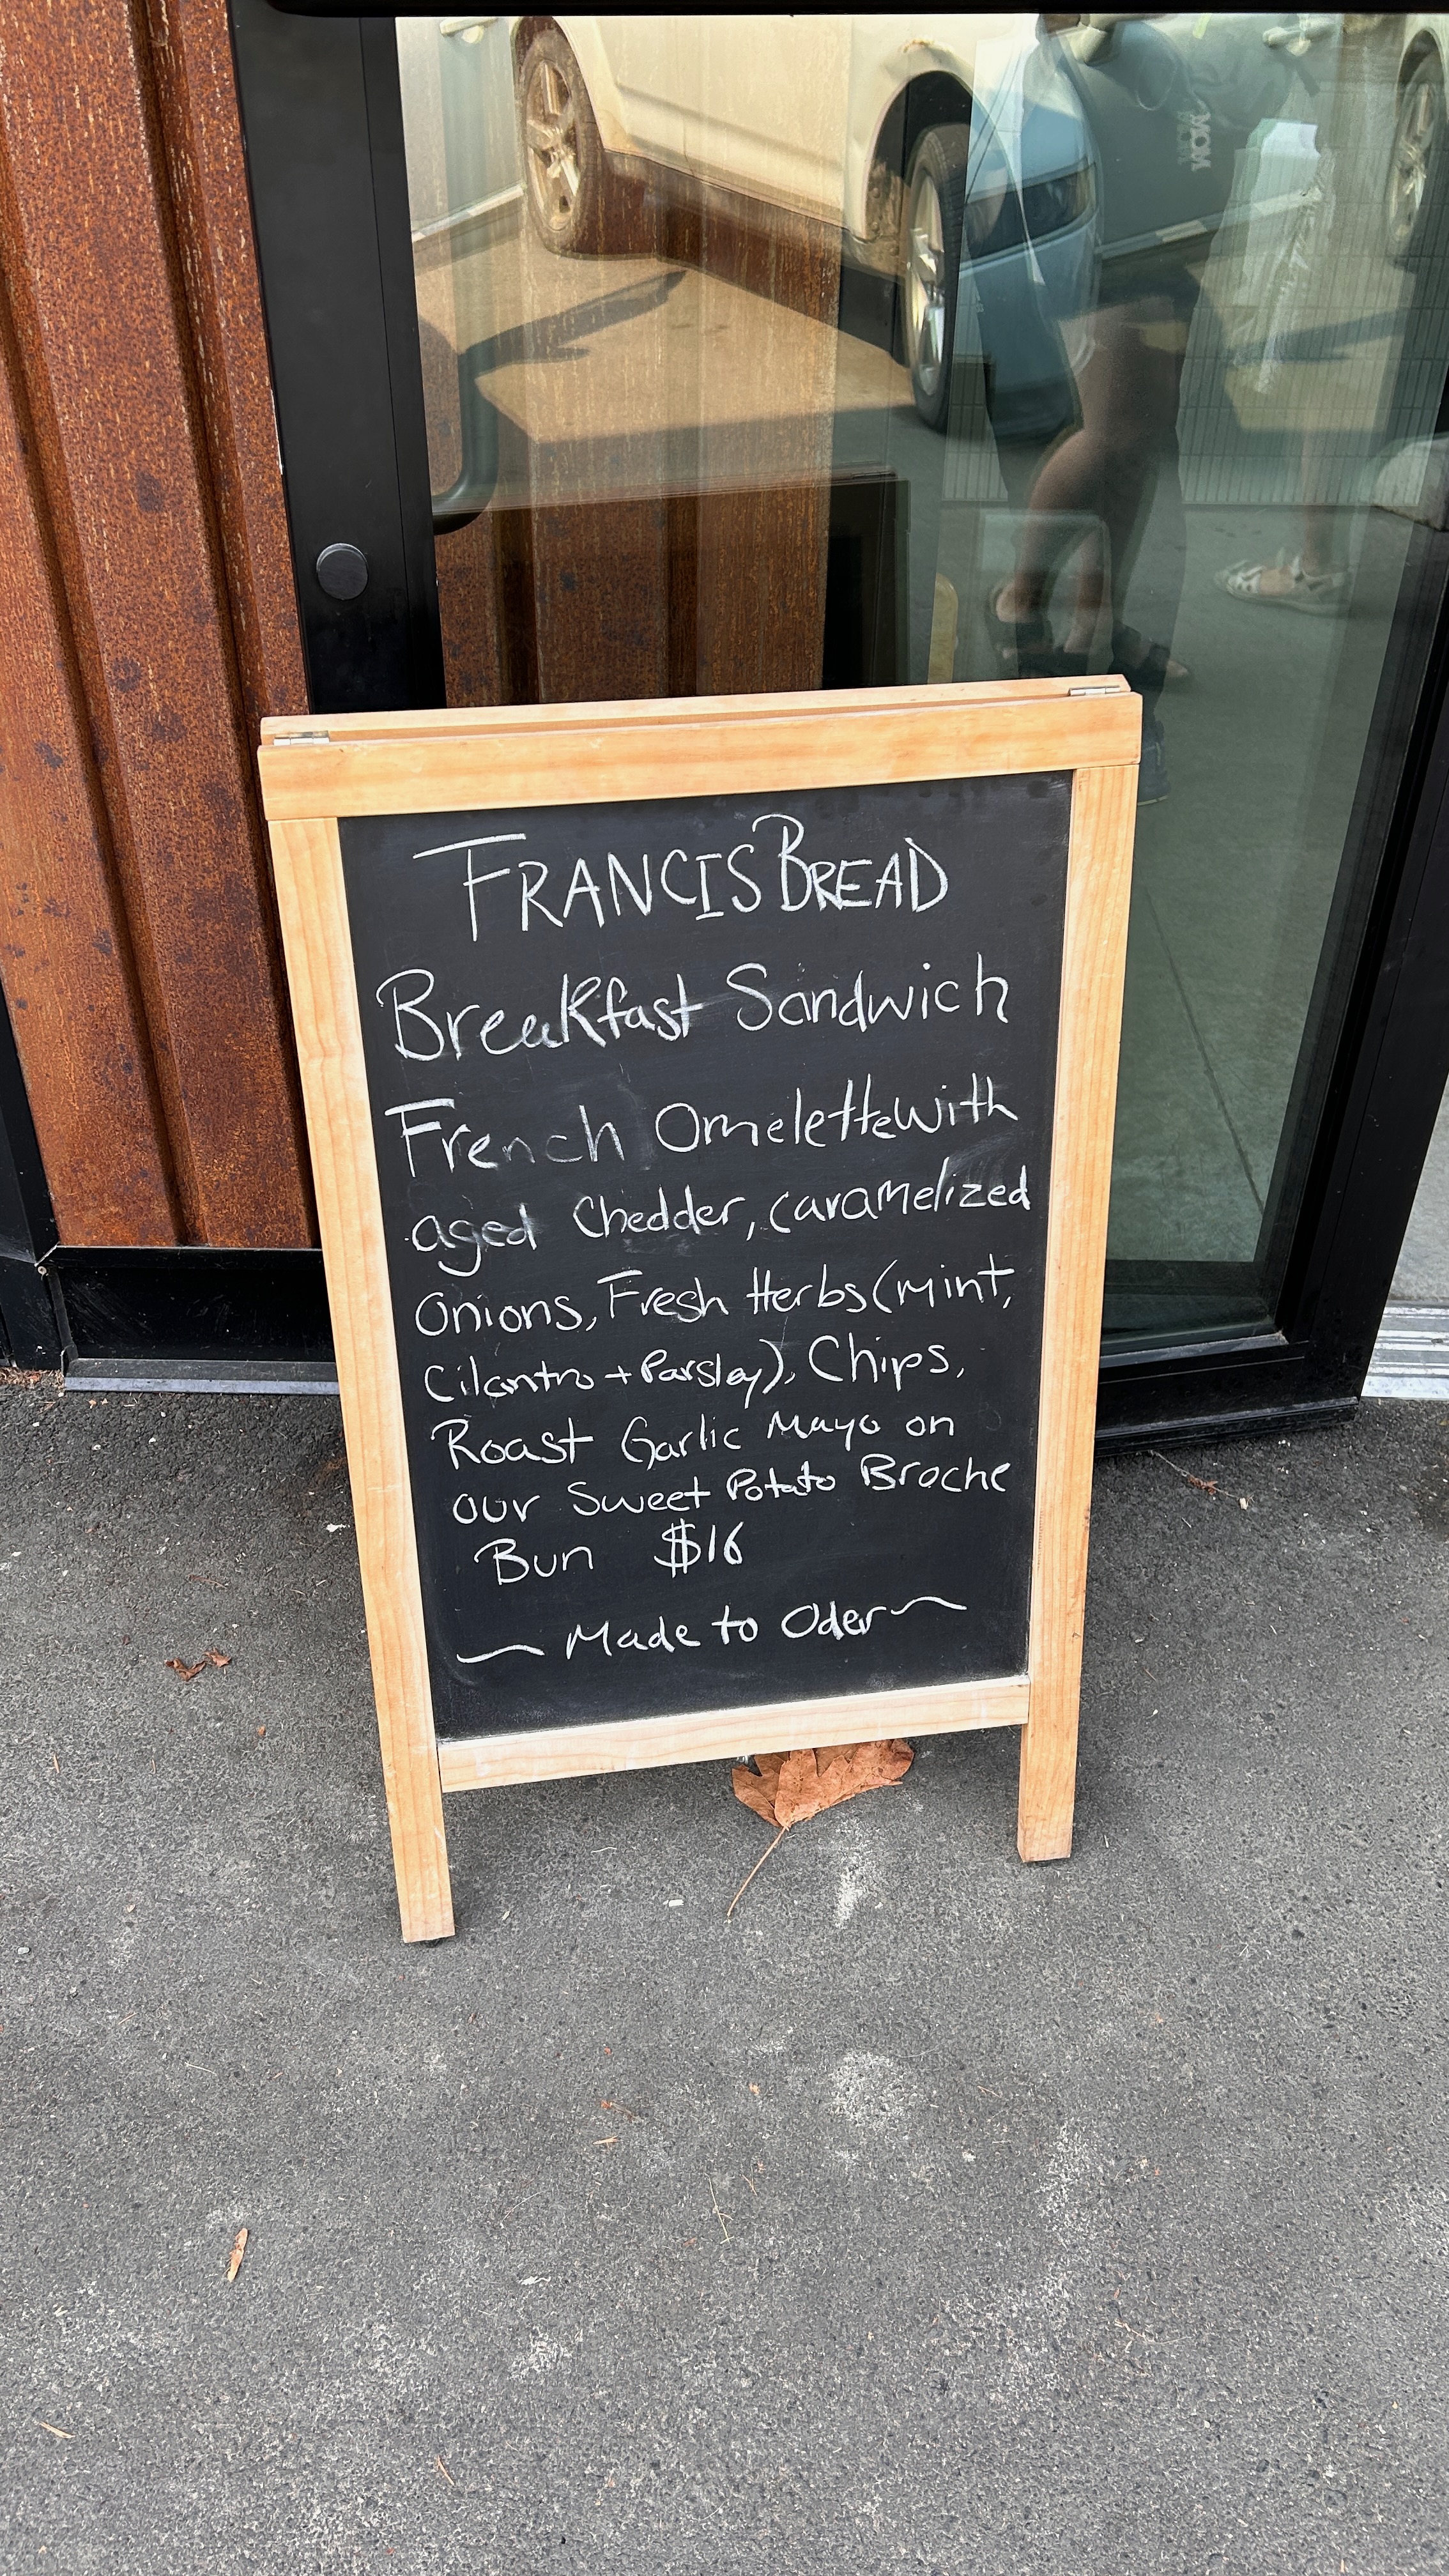 FRANCIS BREAD
Breakfast Sandwich
French Omelette with
aged Chedder, caramelized
Onions, Fresh Herbs (mint,
Cilantro + Parsley), Chips,
Roast Garlic Mayo on
our Sweet Potato Broche
Bun $16
~ Made to Oder ~